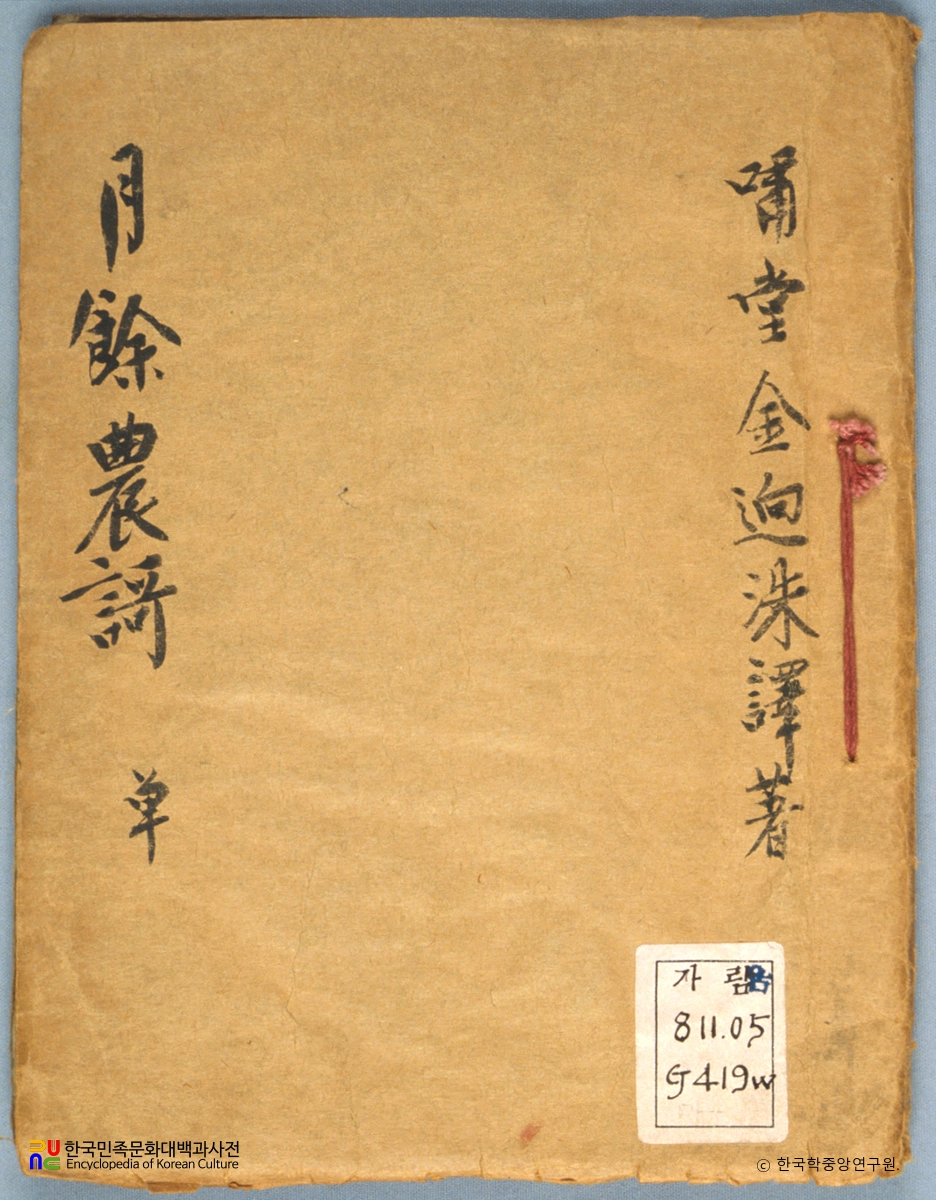 嘯堂金逈洙譯著
月餘農謌 単
가람
811.05
G419w
한국민족문화대백과사전
Encyclopedia of Korean Culture
© 한국학중앙연구원.